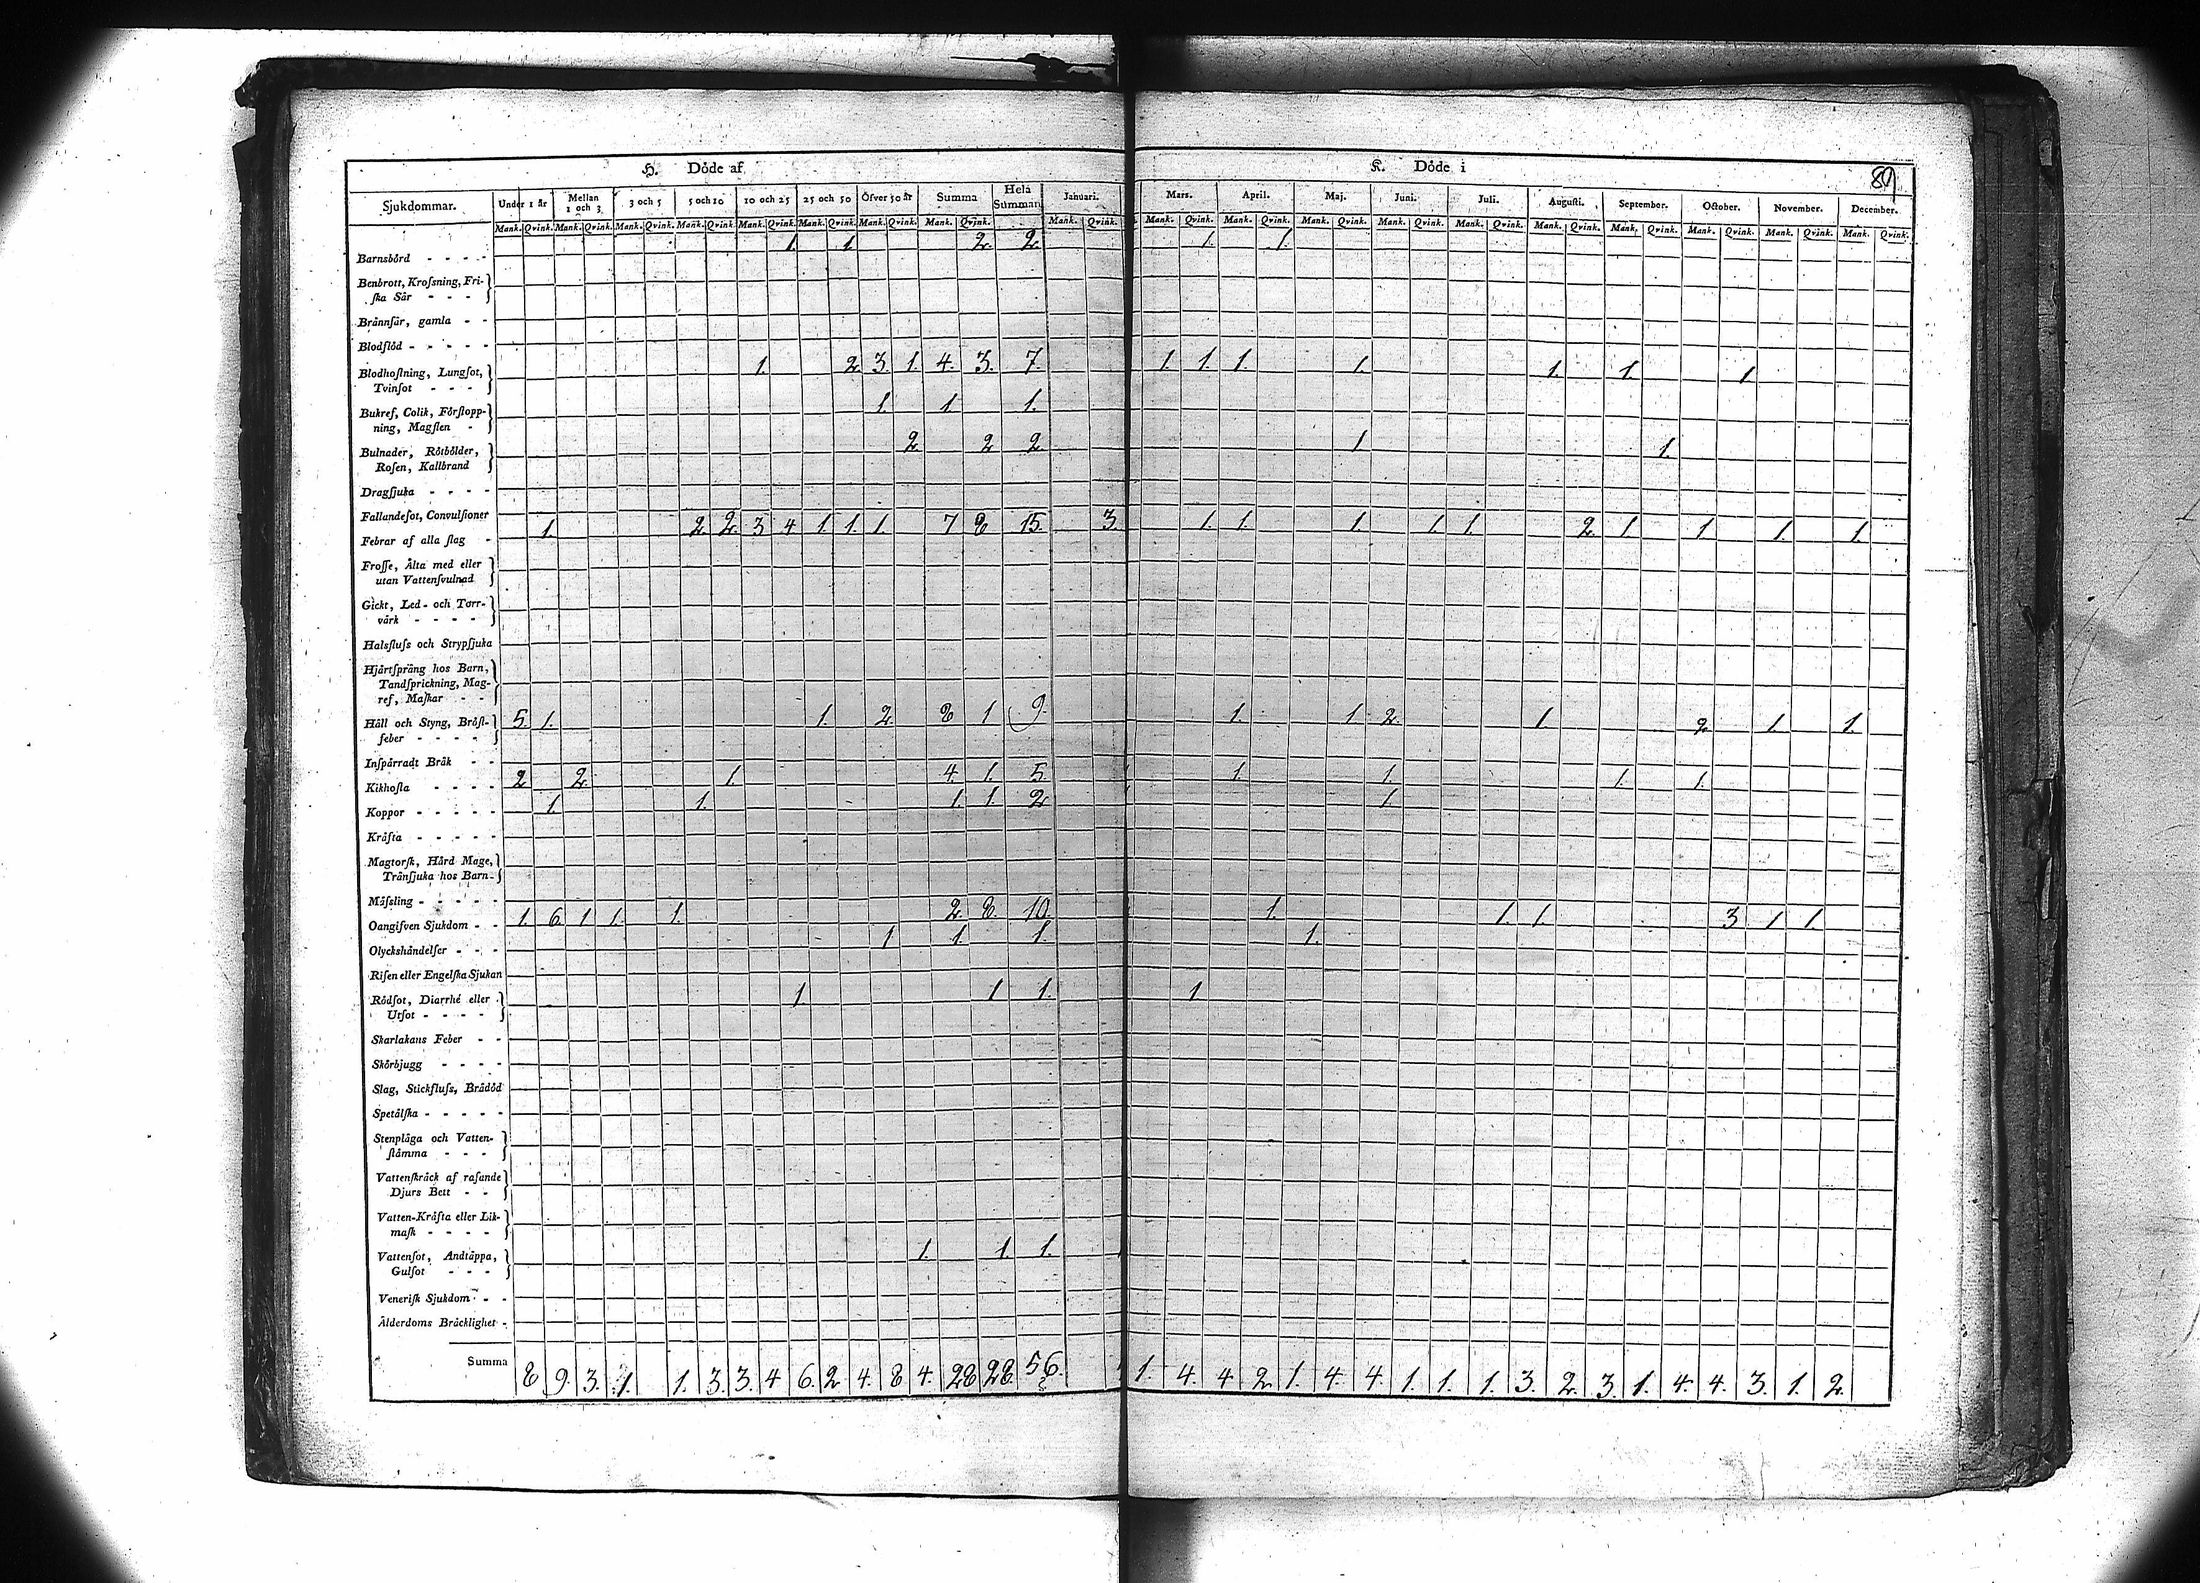 H. Döde af
K. Döde i
89
Sjukdommar. Under 1 år Mellan 1 och 3 3 och 5 5 och 10 10 och 25 25 och 50 Öfver 50 år Summa Hela Summan Januari. Mars. April. Maj. Juni. Juli. Augusti. September. October. November. December.
Mank. Qvink. Mank. Qvink. Mank. Qvink. Mank. Qvink. Mank. Qvink. Mank. Qvink. Mank. Qvink. Mank. Qvink. Mank. Qvink. Mank. Qvink. Mank. Qvink. Mank. Qvink. Mank. Qvink. Mank. Qvink. Mank. Qvink. Mank. Qvink. Mank. Qvink. Mank. Qvink. Mank. Qvink.
Barnsbörd - - - - 1. 1. 2. 2. 1. 1.
Benbrott, Kroſsning, Fri-
ſka Sår - - -
Brännſår, gamla - -
Blodflöd - - - - -
Blodhoſtning, Lungſot, 1. 2 3. 1. 4. 3. 7. 1. 1. 1. 1. 1. 1. 1.
Tvinſot - - -
Bukref, Colik, Förſtopp- 1. 1 1.
ning, Magſten -
Bulnader, Rötbölder, 2. 2 2. 1. 1.
Roſen, Kallbrand
Dragſjuka - - - -
Fallandeſot, Convulſioner
Febrar af alla ſlag - 1. 2. 2. 3 4 1. 1. 1. 7 8 15. 3. 1. 1. 1. 1. 1. 2. 1 1. 1. 1.
Froſſe, Älta med eller
utan Vattenſvulnad
Gickt, Led- och Torr-
värk - - - -
Halsfluſs och Strypſjuka
Hjärtſpräng hos Barn,
Tandſprickning, Mag-
ref, Maſkar - -
Håll och Styng, Bröſt- 5. 1. 1. 2. 8 1 9. 1. 1 2. 1. 2 1. 1.
feber - - - -
Inſpärradt Bråk - -
Kikhoſta - - - - 2 2. 1. 4. 1. 5. 1. 1. 1. 1.
Koppor - - - - - 1. 1. 1. 1. 2 1.
Kräfta - - - - -
Magtorſk, Hård Mage,
Tränſjuka hos Barn-
Mäſsling - - - - -
Oangifven Sjukdom - - 1. 6 1 1. 1. 2. 8. 10. 1. 1. 1. 3 1 1.
Olyckshändelſer - - - 1 1. 1. 1.
Riſen eller Engelſka Sjukan
Rödſot, Diarrhé eller 1. 1 1. 1
Utſot - - - -
Skarlakans Feber - -
Skörbjugg - - - -
Slag, Stickfluſs, Brådöd
Spetälſka - - - - -
Stenplåga och Vatten-
ſtämma - - -
Vattenſkräck af raſande
Djurs Bett - -
Vatten-Kräfta eller Lik-
maſk - - - -
Vattenſot, Andtäppa, 1. 1. 1.
Gulſot - - -
Veneriſk Sjukdom - -
Ålderdoms Bräcklighet -
Summa 8 9. 3. 1. 1. 3. 3. 4 6. 2 4. 8 4. 28 28. 56. 1. 4. 4 2 1. 4. 4. 1. 1. 1. 3. 2. 3. 1. 4. 4. 3. 1. 2.